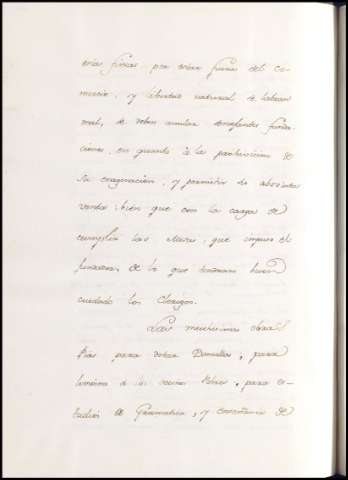 estas fincas por estar fuera del Co-
mercio, y libertad natural de labran
se deben anular semejantes funda-
ciones, en quanto à la prohivicion de
su enagenacion, y permitir su absoluta
venta; bien que con la carga de
cumplir las Misas, que impuso el
fundador, de lo que tendran buen
cuidado los Clerigos.
Las muchisimas obras
Pias para dotar Doncellas, para
limosna à los Pobres, para es-
tudios de Gramatica, y enseñanza de